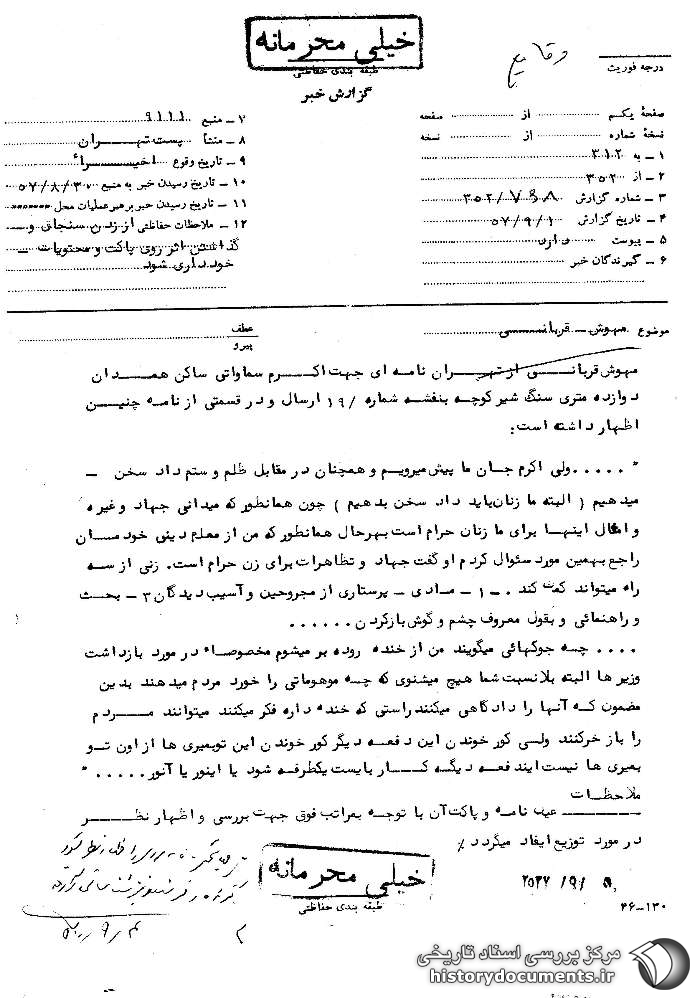 خیلی محرمانه
طبقه بندی حفاظتی
گزارش خبر
وقایع
درجه فوریت
صفحهٔ یکم از صفحه
نسخهٔ شماره از نسخه
۱ – به ۳۱۲
۲ – از ۳۵۲
۳ – شماره گزارش ۳۵۲/۷۹۸
۴ – تاریخ گزارش ۵۷/۹/۱
۵ – پیوست دارد
۶ – گیرندگان خبر
۷ – منبع ۹۱۱۱
۸ – منشأ پست تهران
۹ – تاریخ وقوع اخیراً
۱۰ – تاریخ رسیدن خبر به منبع ۵۷/۸/۳۰
۱۱ – تاریخ رسیدن خبر برهبر عملیات محل
۱۲ – ملاحظات حفاظتی از زدن سنجاق و
گذاشتن اثر روی پاکت و محتویات –
خودداری شود
موضوع مهوش – قربانی
عطف
پیرو
مهوش قربانی از تهران نامه ای جهت اکرم سماواتی ساکن همدان
دوازده متری سنگ شیر کوچه بنفشه شماره ۱۹/ ارسال و در قسمتی از نامه چنین
اظهار داشته است:
" ..... ولی اکرم جان ما پیش میرویم و همچنان در مقابل ظلم و ستم داد سخن –
میدهیم ( البته ما زنان باید داد سخن بدهیم ) چون همانطور که میدانی جهاد و غیره
و امثال اینها برای ما زنان حرام است بهرحال همانطور که من از معلم دینی خودمان
راجع بهمین مورد سئوال کردم او گفت جهاد و تظاهرات برای زن حرام است. زنی از سه
راه میتواند کمک کند ۰ – ۱ – مادی – پرستاری از مجروحین و آسیب دیدگان ۳ – بحث
و راهنمائی و بقول معروف چشم و گوش باز کردن ......
.... چه جوکهائی میگویند من از خنده روده بر میشوم مخصوصاً در مورد بازداشت
وزیر ها البته بلانسبت شما هیچ میشنوی که چه موهوماتی را خورد مردم میدهند بدین
مضمون که آنها را دادگاهی میکنند راستی که خنده داره فکر میکنند میتوانند مردم
را باز خر کنند ولی کور خوندن این دفعه دیگر کور خوندن این تو
ها نیست ایندفعه دیگه کار بایست یکطرفه شود یا اینور یا آنور ..... "
ملاحظات
عین نامه و پاکت آن با توجه بمراتب فوق جهت بررسی و اظهار نظر
در مورد توزیع ایفاد میگردد٪
خیلی محرمانه
طبقه بندی حفاظتی
۴۶–۱۳۰
مرکز بررسی اسناد تاریخی
historydocuments.ir